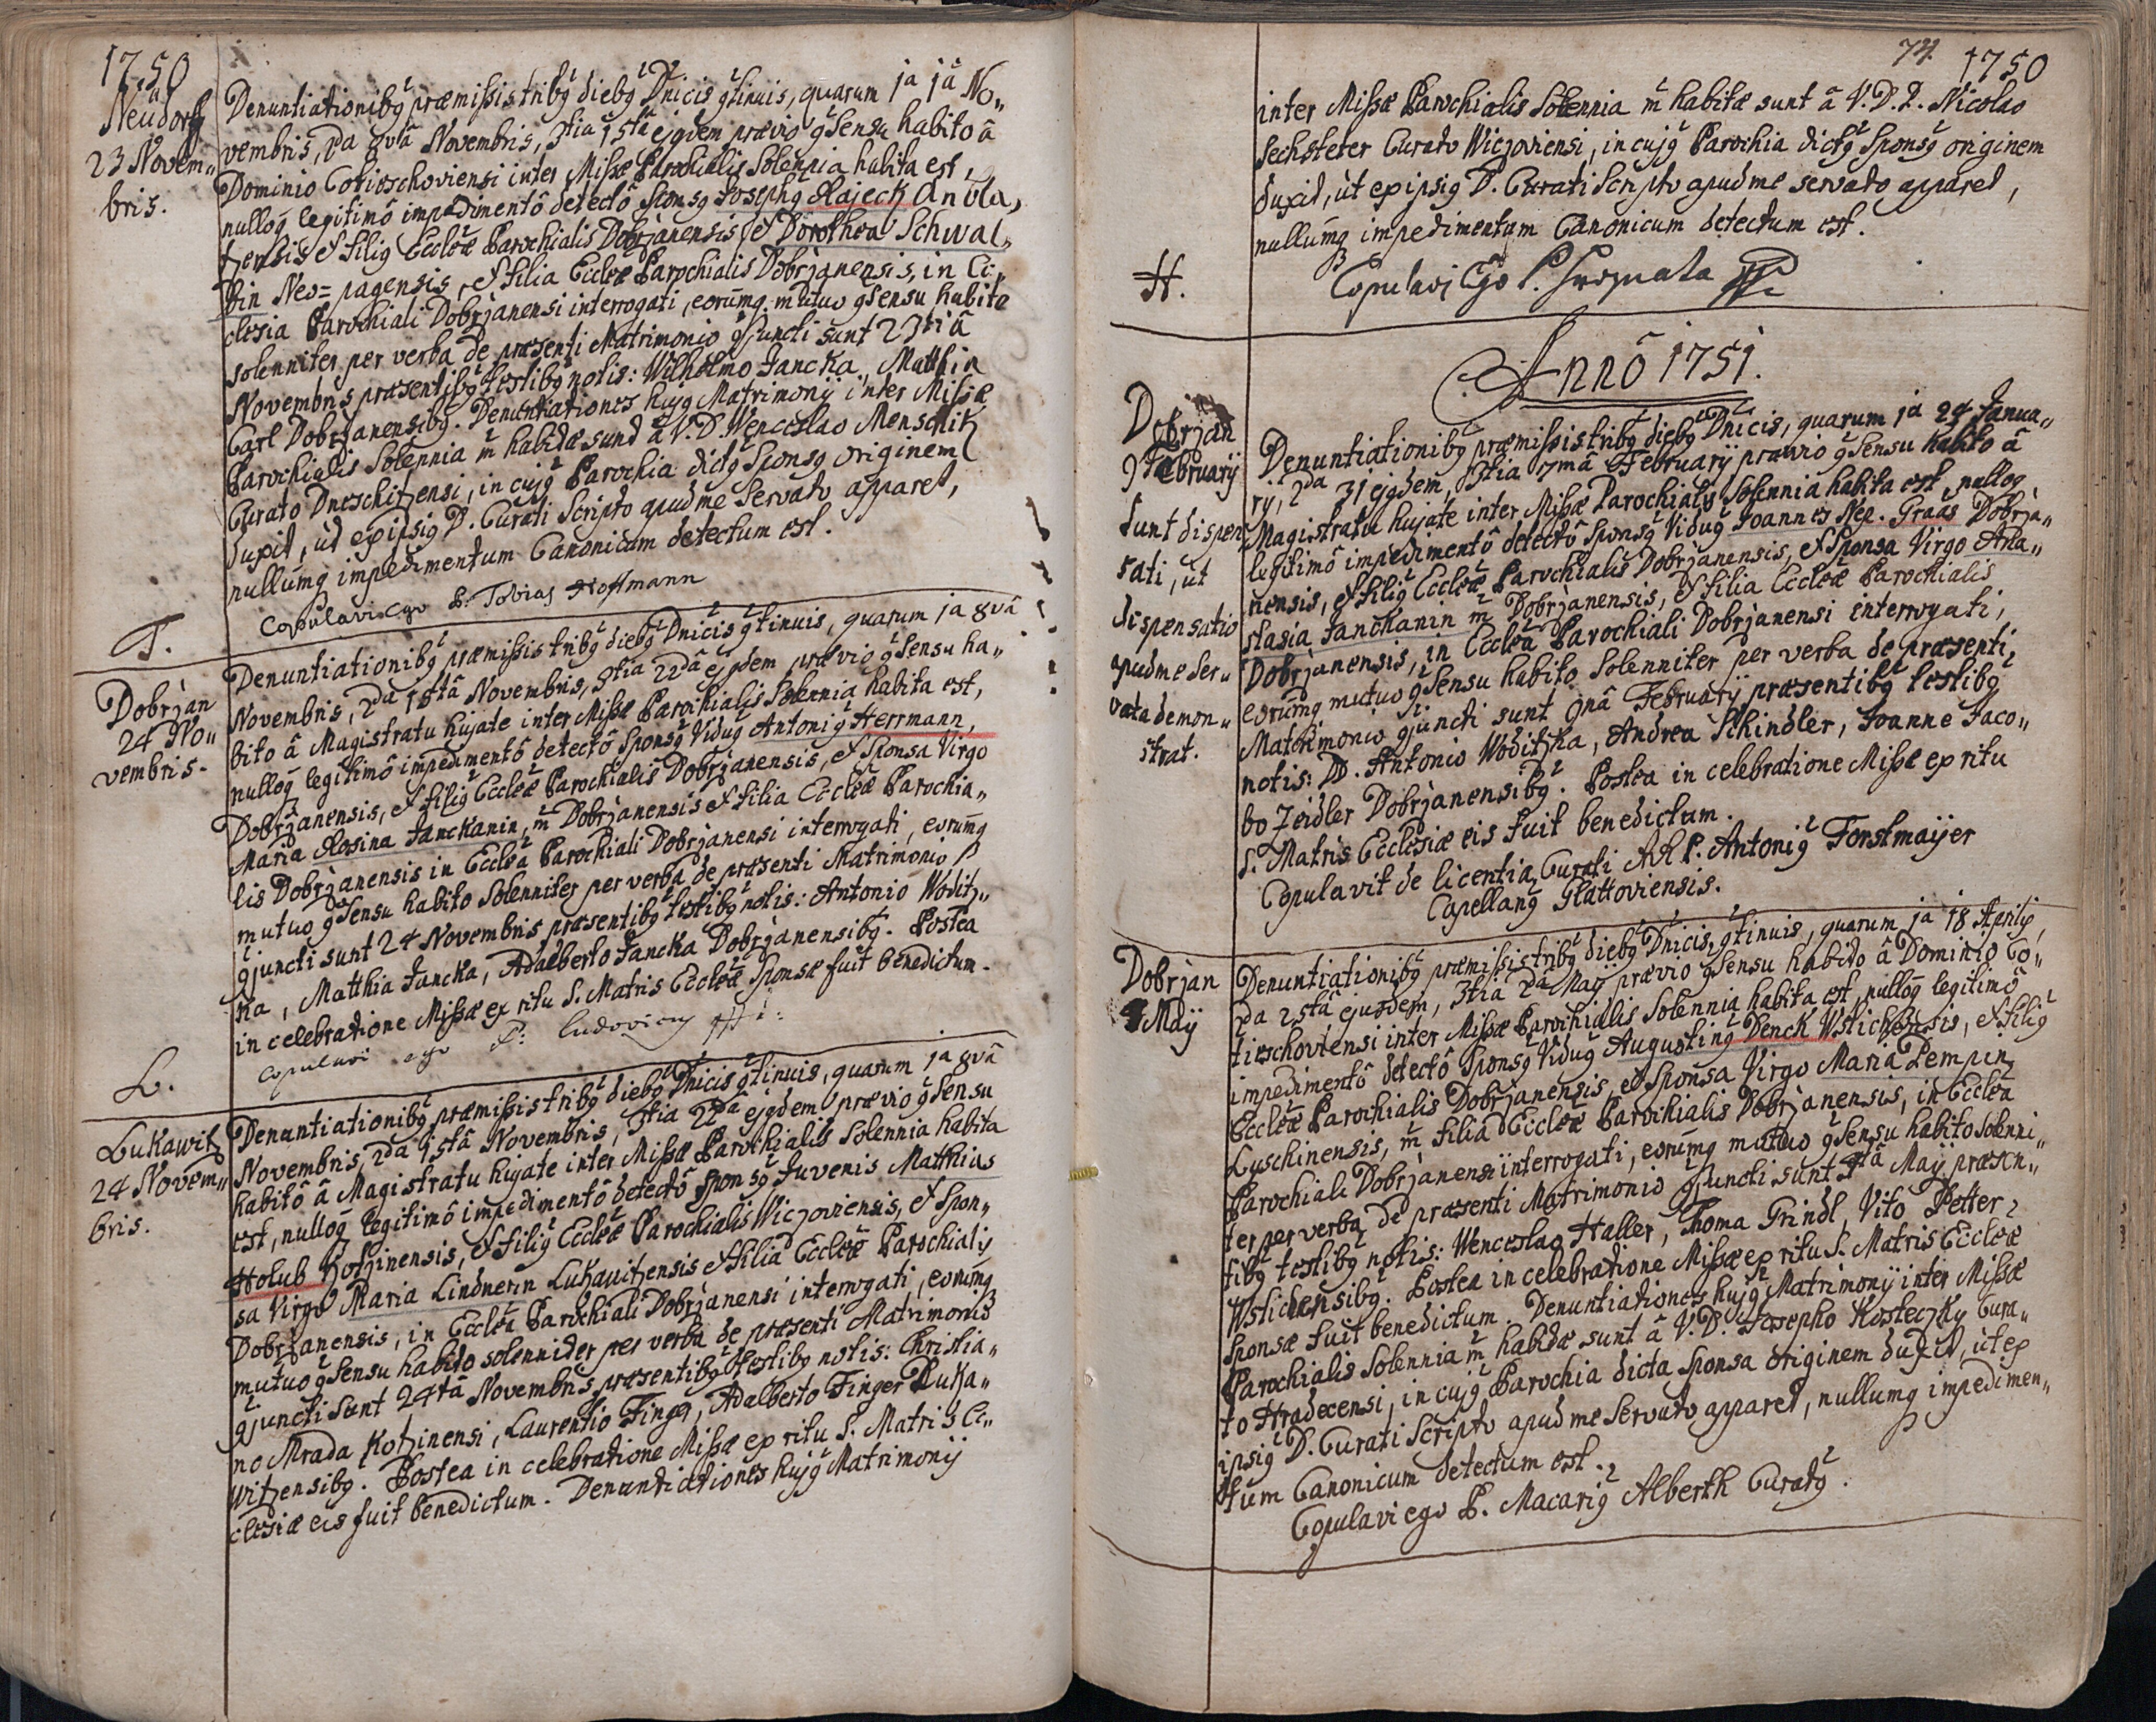 1750
Neudorf
23 Novem„
bris.
Denuntiationibq præmissis tribq diebq Dnicis qtinuis, quarum 1a 1â No„
vembris, 2da 8vâ Novembris, 3tia 15tâ ejqdem prævio qsensu habito â
Dominio Cotieschoviensi inter Missæ Parochialis Solennia habita est,
nulloq legitimô impedimentô detectô Sponsq Josephq Rajeck
tzensis & filiq Eccleæ Parochialis Dobrzanensis & Dorothea Schwal„
bin Neo=pagensis, & filia Eccleæ Parochialis Dobrzanensis, in Ec„
clesia Parochiali Dobrzanensi interrogati, eorumq mutuo qsensu habito
solenniter per verba de præsenti Matrimonio qjuncti sunt 23tiâ
Novembris præsentibq testibq notis: Wilhelmo Jancka, Matthia
Carl Dobrzanensibq. Denuntiationes hujq Matrimonij inter Missæ
Parochialis Solennia m̃ habitæ sunt â V.D. Wenceslao Menschik
Curato Dneschitzensi, in cujq Parochia dictq Sponsq originem
duxit, ut ex ipsiq D. Curati Scripto apud me servato apparet,
nullumq impedimentum Canonicum detectum est.
Copulavi Ego P. Tobias Hoffmann
T.
Dobrzan
24 No„
vembris.
Denuntiationibq præmissis tribq diebq Dnicis qtinuis, quarum 1a 8vâ
Novembris, 2da 15tâ Novembris, 3tia 22dâ ejqdem prævio qsensu ha„
bito â Magistratu hujate inter Missæ Parochialis Solennia habita est,
nulloq legitimô impedimentô detectô Sponsq Viduq Antoniq Herrmann,
Dobrzanensis, & filiq Eccleæ Parochialis Dobrzanensis, & Sponsa Virgo
Maria Rosina Janckanin, m̃ Dobrzanensis & filia Eccleæ Parochia„
lis Dobrzanensis in Ecclea Parochiali Dobrzanensi interrogati, eorumq
mutuo qsensu habito Solenniter per verba de præsenti Matrimonio
qjuncti sunt 24 Novembris præsentibq testibq notis: Antonio Woditz„
ka, Matthia Jancka, Adalberto Jancka Dobrzanensibq. Postea
in celebratione Missæ ex ritu S. Matris Eccleæ Sponsæ fuit benedictum.
Copulavi ego P: Ludovicus
L.
Lukawitz
24 Novem„
bris.
Denuntiationibq præmissis tribq diebq Dnicis qtinuis, quarum 1a 8vâ
Novembris, 2da 15tâ Novembris, 3tia 22dâ ejqdem prævio qsensu
habitô â Magistratu hujate inter Missæ Parochialis Solennia habita
est, nulloq legitimô impedimentô detectô Sponsq Juvenis Matthias
Holub Kotzinensis, & filiq Eccleæ Parochialis Wiczoviensis, & Spon„
sa Virgo Maria Lindnerin Lukawitzensis & filia Eccleæ Parochialis
Dobrzanensis, in Ecclea Parochiali Dobrzanensi interrogati, eorumq
mutuo qsensu habito solenniter per verba de præsenti Matrimonio
qjuncti sunt 24tâ Novembris præsentibq testibq notis: Christia„
no Mrada Kotzinensi, Laurentio Finger, Adalberto Finger Luka„
witzensibq. Postea in celebratione Missæ ex ritu S. Matris Ec„
clesiæ eis fuit benedictum. Denuntiationes hujq Matrimonij
74 1750
inter Missæ Parochialis Solennia m̃ habitæ sunt â V.D. P. Nicolao
Sechsteter Curato Wiczoviensi, in cujq Parochia dictq Sponsq originem
duxit, ut ex ipsiq D. Curati Scripto apud me servato apparet,
nullumq impedimentum Canonicum detectum est.
H.
Copulavi Ego P.
Annô 1751.
Dobrzan
9 February
Sunt dispen„
sati, ut
dispensatio
apud me ser„
vata demon„
strat.
Denuntiationibq præmissis tribq diebq Dnicis, quarum 1a 24 Janua„
rij, 2da 31 ejqdem, 3tia 7mâ February prævio qsensu habito â
Magistratu hujate inter Missæ Parochialis Solennia habita est, nulloq
legitimô impedimentô detectô Sponsq Viduq Joannes Nep. Graas Dobrza„
nensis, & filiq Eccleæ Parochialis Dobrzanensis, & Sponsa Virgo Ana„
stasia Janckanin m̃ Dobrzanensis, & filia Eccleæ Parochialis
Dobrzanensis, in Ecclea Parochiali Dobrzanensi interrogati,
eorumq mutuo qsensu habito Solenniter per verba de præsenti
Matrimonio qjuncti sunt 9nâ February præsentibq testibq
notis: D. Antonio Woditzka, Andrea Schindler, Joanne Jaco„
bo Zeidler Dobrzanensibq. Postea in celebratione Missæ ex ritu
S. Matris Ecclesiæ eis fuit benedictum.
Copulavit de licentia Curati A.R.P. Antoniq Forstmaijer
Capellanq Glattoviensis.
Dobrzan
4 Maij
Denuntiationibq præmissis tribq diebq Dnicis qtinuis, quarum 1a 18 Aprilis,
2da 25tâ ejusdem, 3tia 2dâ Maij prævio qsensu habito â Dominio Co„
tieschoviensi inter Missæ Parochialis Solennia habita est, nulloq legitimô
impedimentô detectô Sponsq Viduq Augustinq Denck Wstichensis, & filiq
Eccleæ Parochialis Dobrzanensis, & Sponsa Virgo Maria Pempin
Luschinensis, m̃ filia Eccleæ Parochialis Dobrzanensis, in Ecclea
Parochiali Dobrzanensi interrogati, eorumq mutuo qsensu habito Solenni„
ter per verba de præsenti Matrimonio qjuncti sunt 4tâ Maij præsen„
tibq testibq notis: Wenceslao Haller, Thoma Grindl, Vito Petter
Wstichensibq. Postea in celebratione Missæ ex ritu S. Matris Eccleæ
Sponsæ fuit benedictum. Denuntiationes hujq Matrimonij inter Missæ
Parochialis Solennia m̃ habitæ sunt â V.D. Josepho Kosteczky Cura„
to Hradecensi, in cujq Parochia dicta Sponsa originem duxit, ut ex
ipsiq D. Curati Scripto apud me servato apparet, nullumq impedimen„
tum Canonicum detectum est.
Copulavi ego P. Macariq Alberth Curatq.